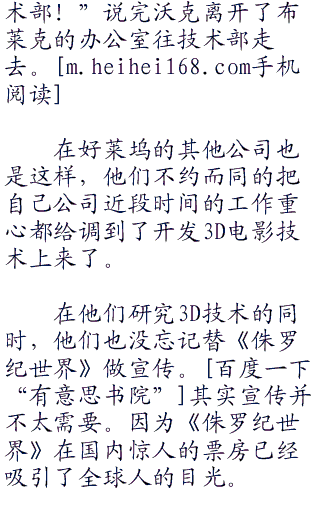 术部！”说完沃克离开了布
莱克的办公室往技术部走
去。[m.heihei168.com手机
阅读]
在好莱坞的其他公司也
是这样，他们不约而同的把
自己公司近段时间的工作重
心都给调到了开发3D电影技
术上来了。
在他们研究3D技术的同
时，他们也没忘记替《侏罗
纪世界》做宣传。[百度一下
“有意思书院”]其实宣传并
不太需要。因为《侏罗纪世
界》在国内惊人的票房已经
吸引了全球人的目光。